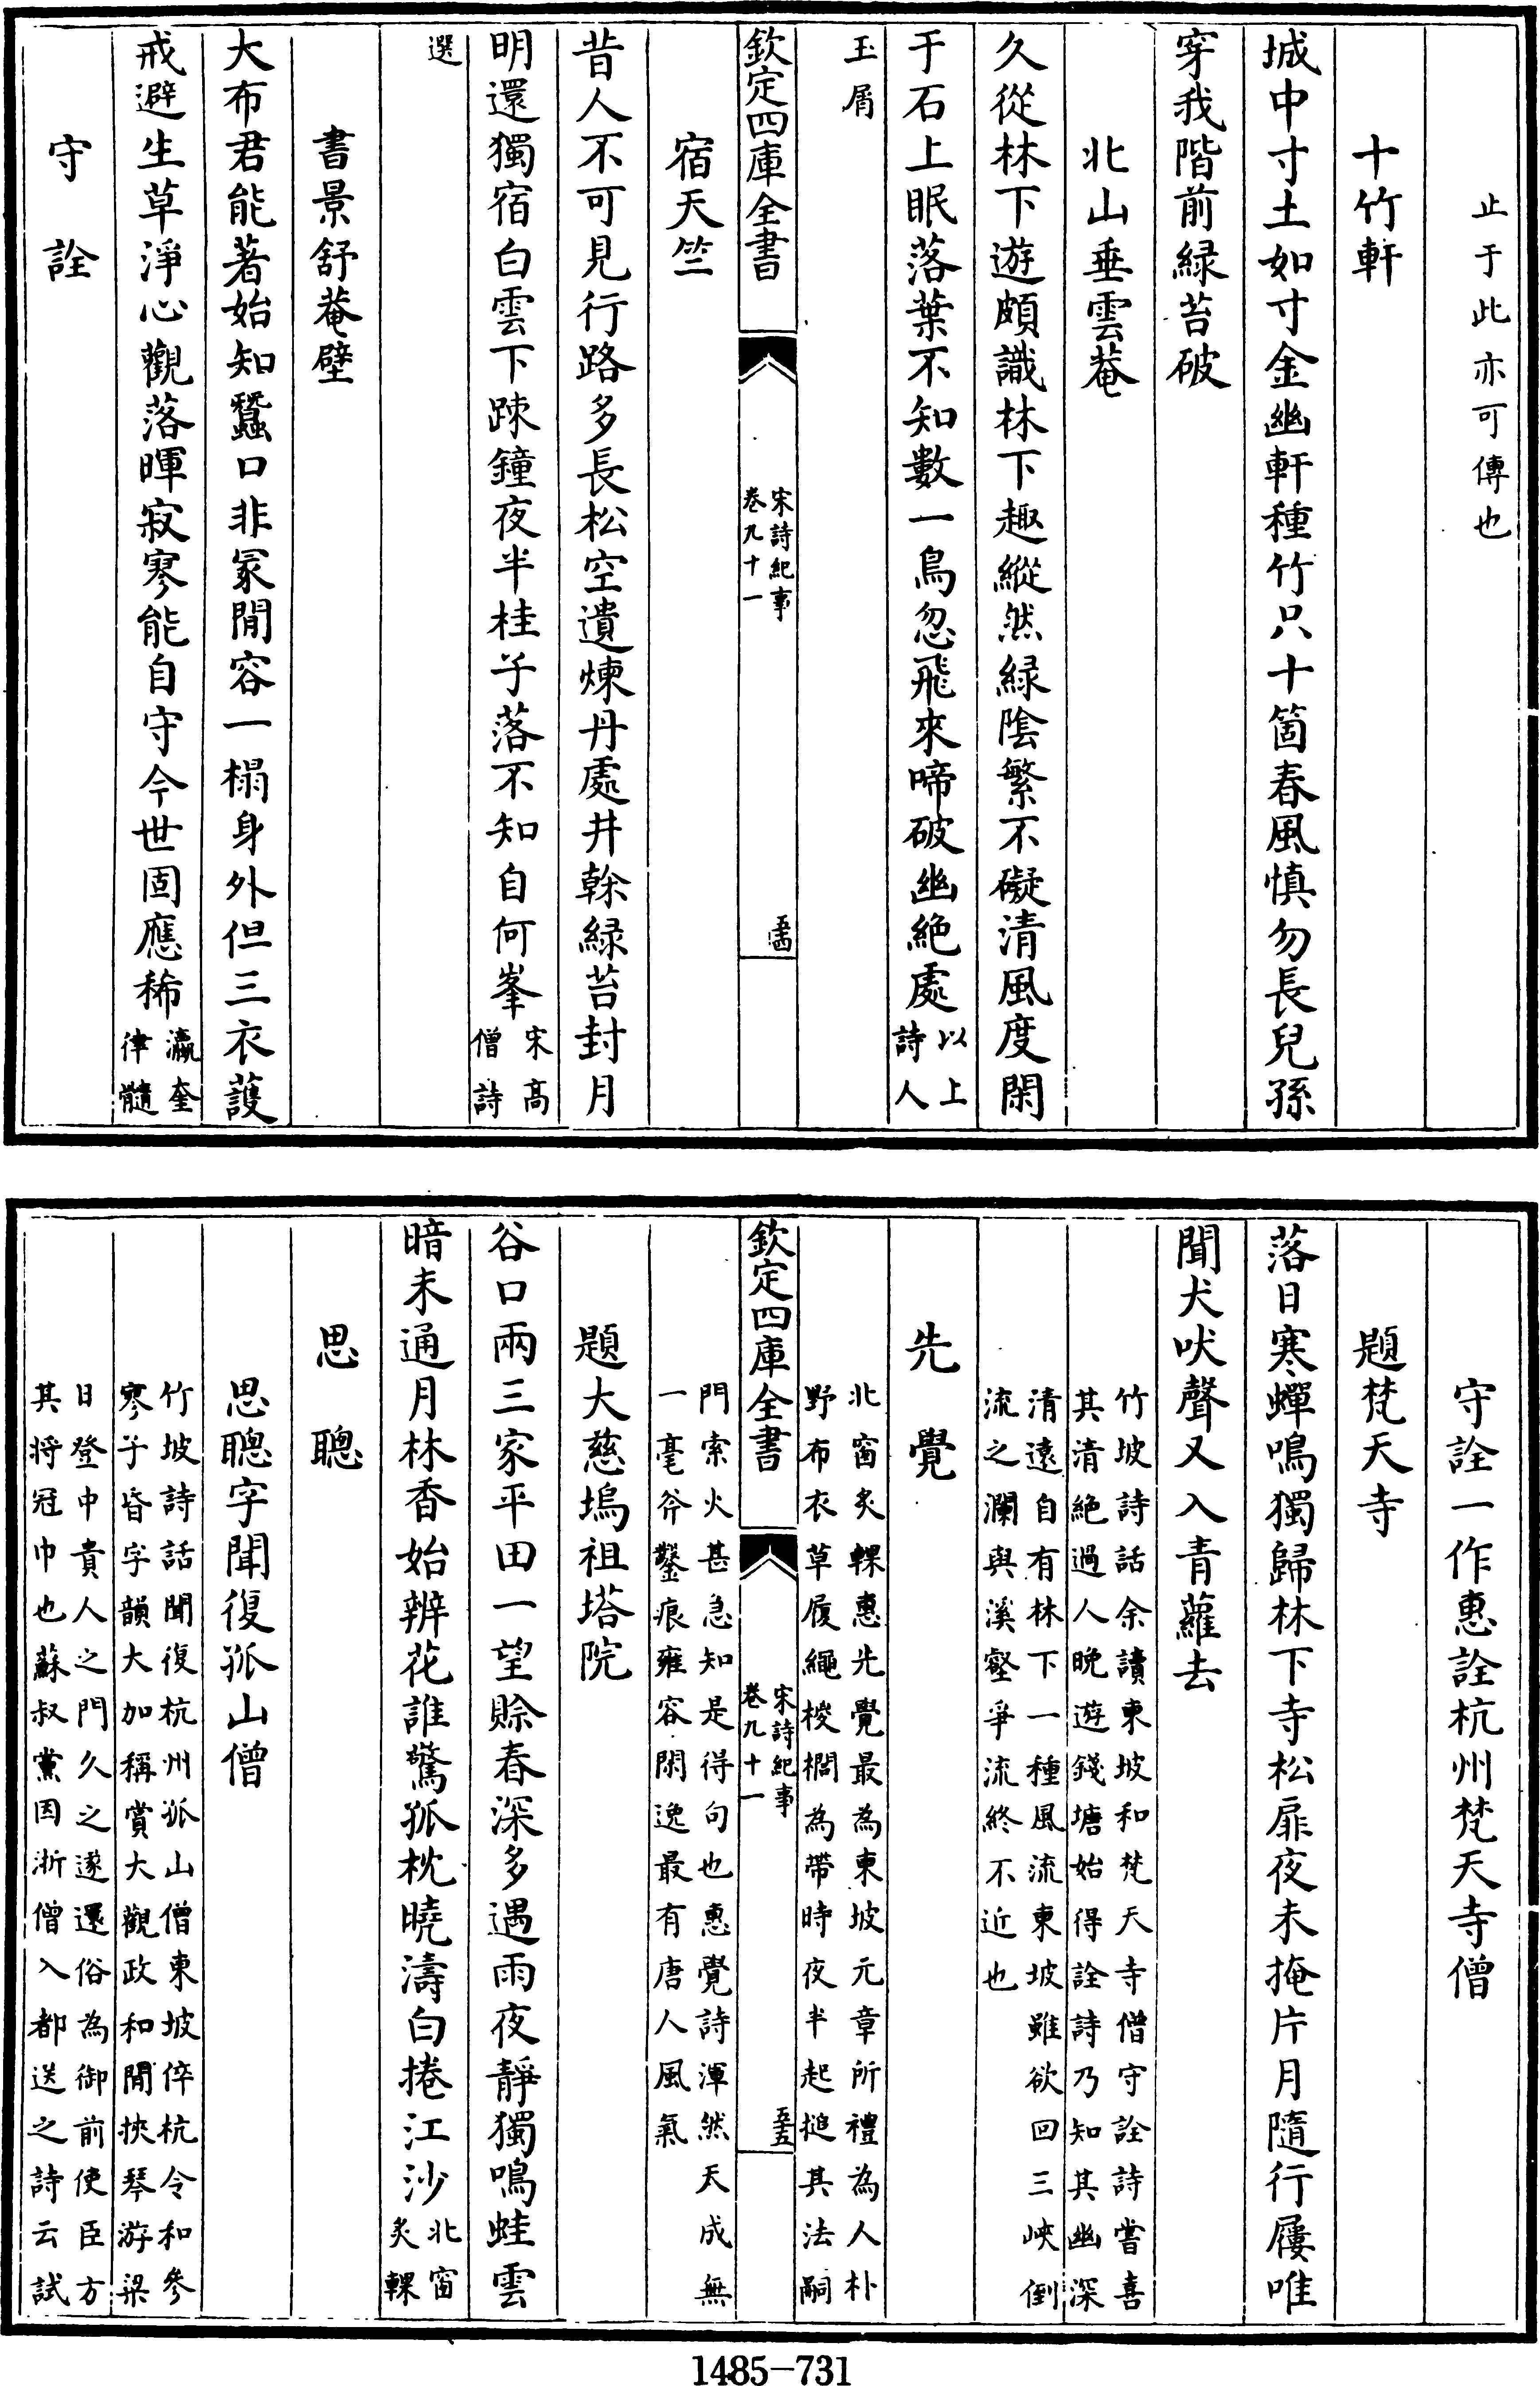 止于此亦可傳也
十竹軒
城中寸土如寸金幽軒種竹只十箇春風慎勿長兒孫
穿我階前緑苔破
北山垂雲菴
久從林下遊頗識林下趣縱然緑陰繁不礙清風度閑
于石上眠落葉不知數一鳥忽飛來啼破幽絶處以上
詩人
玉屑
欽定四庫全書
宋詩紀事
卷九十一
五十四
宿天竺
昔人不可見行路多長松空遺煉丹處井榦緑苔封月
明還獨宿白雲下踈鐘夜半桂子落不知自何峯宋高
僧詩
選
書景舒菴壁
大布君能著始知蠶口非冢閒容一榻身外但三衣護
戒避生草淨心觀落暉寂寥能自守今世固應稀瀛奎
律髓
守詮
守詮一作惠詮杭州梵天寺僧
題梵天寺
落日寒蟬鳴獨歸林下寺松扉夜未掩片月隨行屨唯
聞犬吠聲又入青蘿去
竹坡詩話余讀東坡和梵天寺僧守詮詩嘗喜
其清絶過人晚遊錢塘始得詮詩乃知其幽深
清遠自有林下一種風流東坡雖欲回三峽倒
流之瀾與溪壑爭流終不近也
先覺
北窗炙輠惠先覺最為東坡元章所禮為人朴
野布衣草履繩椶櫚為帶時夜半起搥其法嗣
欽定四庫全書
宋詩紀事
卷九十一
五十五
門索火甚急知是得句也惠覺詩渾然天成無
一毫斧鑿痕雍容閑逸最有唐人風氣
題大慈塢祖塔院
谷口兩三家平田一望賒春深多遇雨夜靜獨鳴蛙雲
暗未通月林香始辨花誰驚孤枕曉濤白捲江沙北窗
炙輠
思聰
思聰字聞復孤山僧
竹坡詩話聞復杭州孤山僧東坡倅杭令和參
寥子昏字韻大加稱賞大觀政和閒挾琴游梁
日登中貴人之門久之遂還俗為御前使臣方
其將冠巾也蘇叔黨因浙僧入都送之詩云試
1485-731